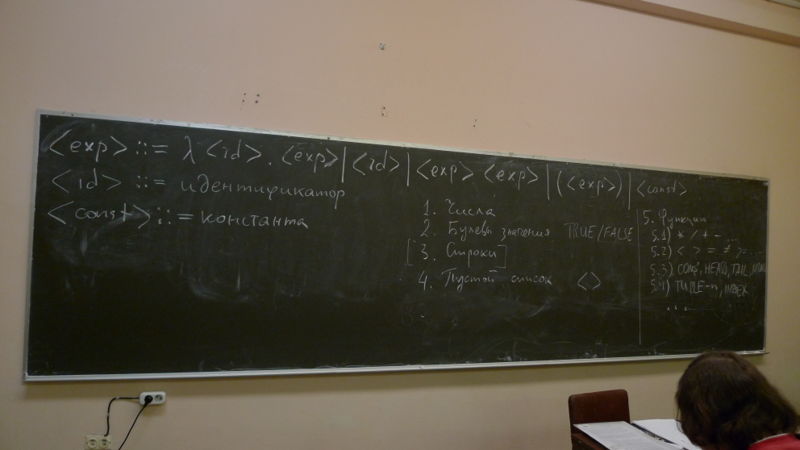 <exp> ::= λ <id> . <exp> | <id> | <exp> <exp> | (<exp>) | <const>
<id> ::= идентификатор
<const> ::= константа
1. Числа
2. Булевы значения TRUE/FALSE
[3. Строки]
4. Пустой список <>
5. Функции
5.1) * / + - ...
5.2) < > = ≠ >= ...
5.3) CONS, HEAD, TAIL,
5.4) TUPLE-n, INDEX
...